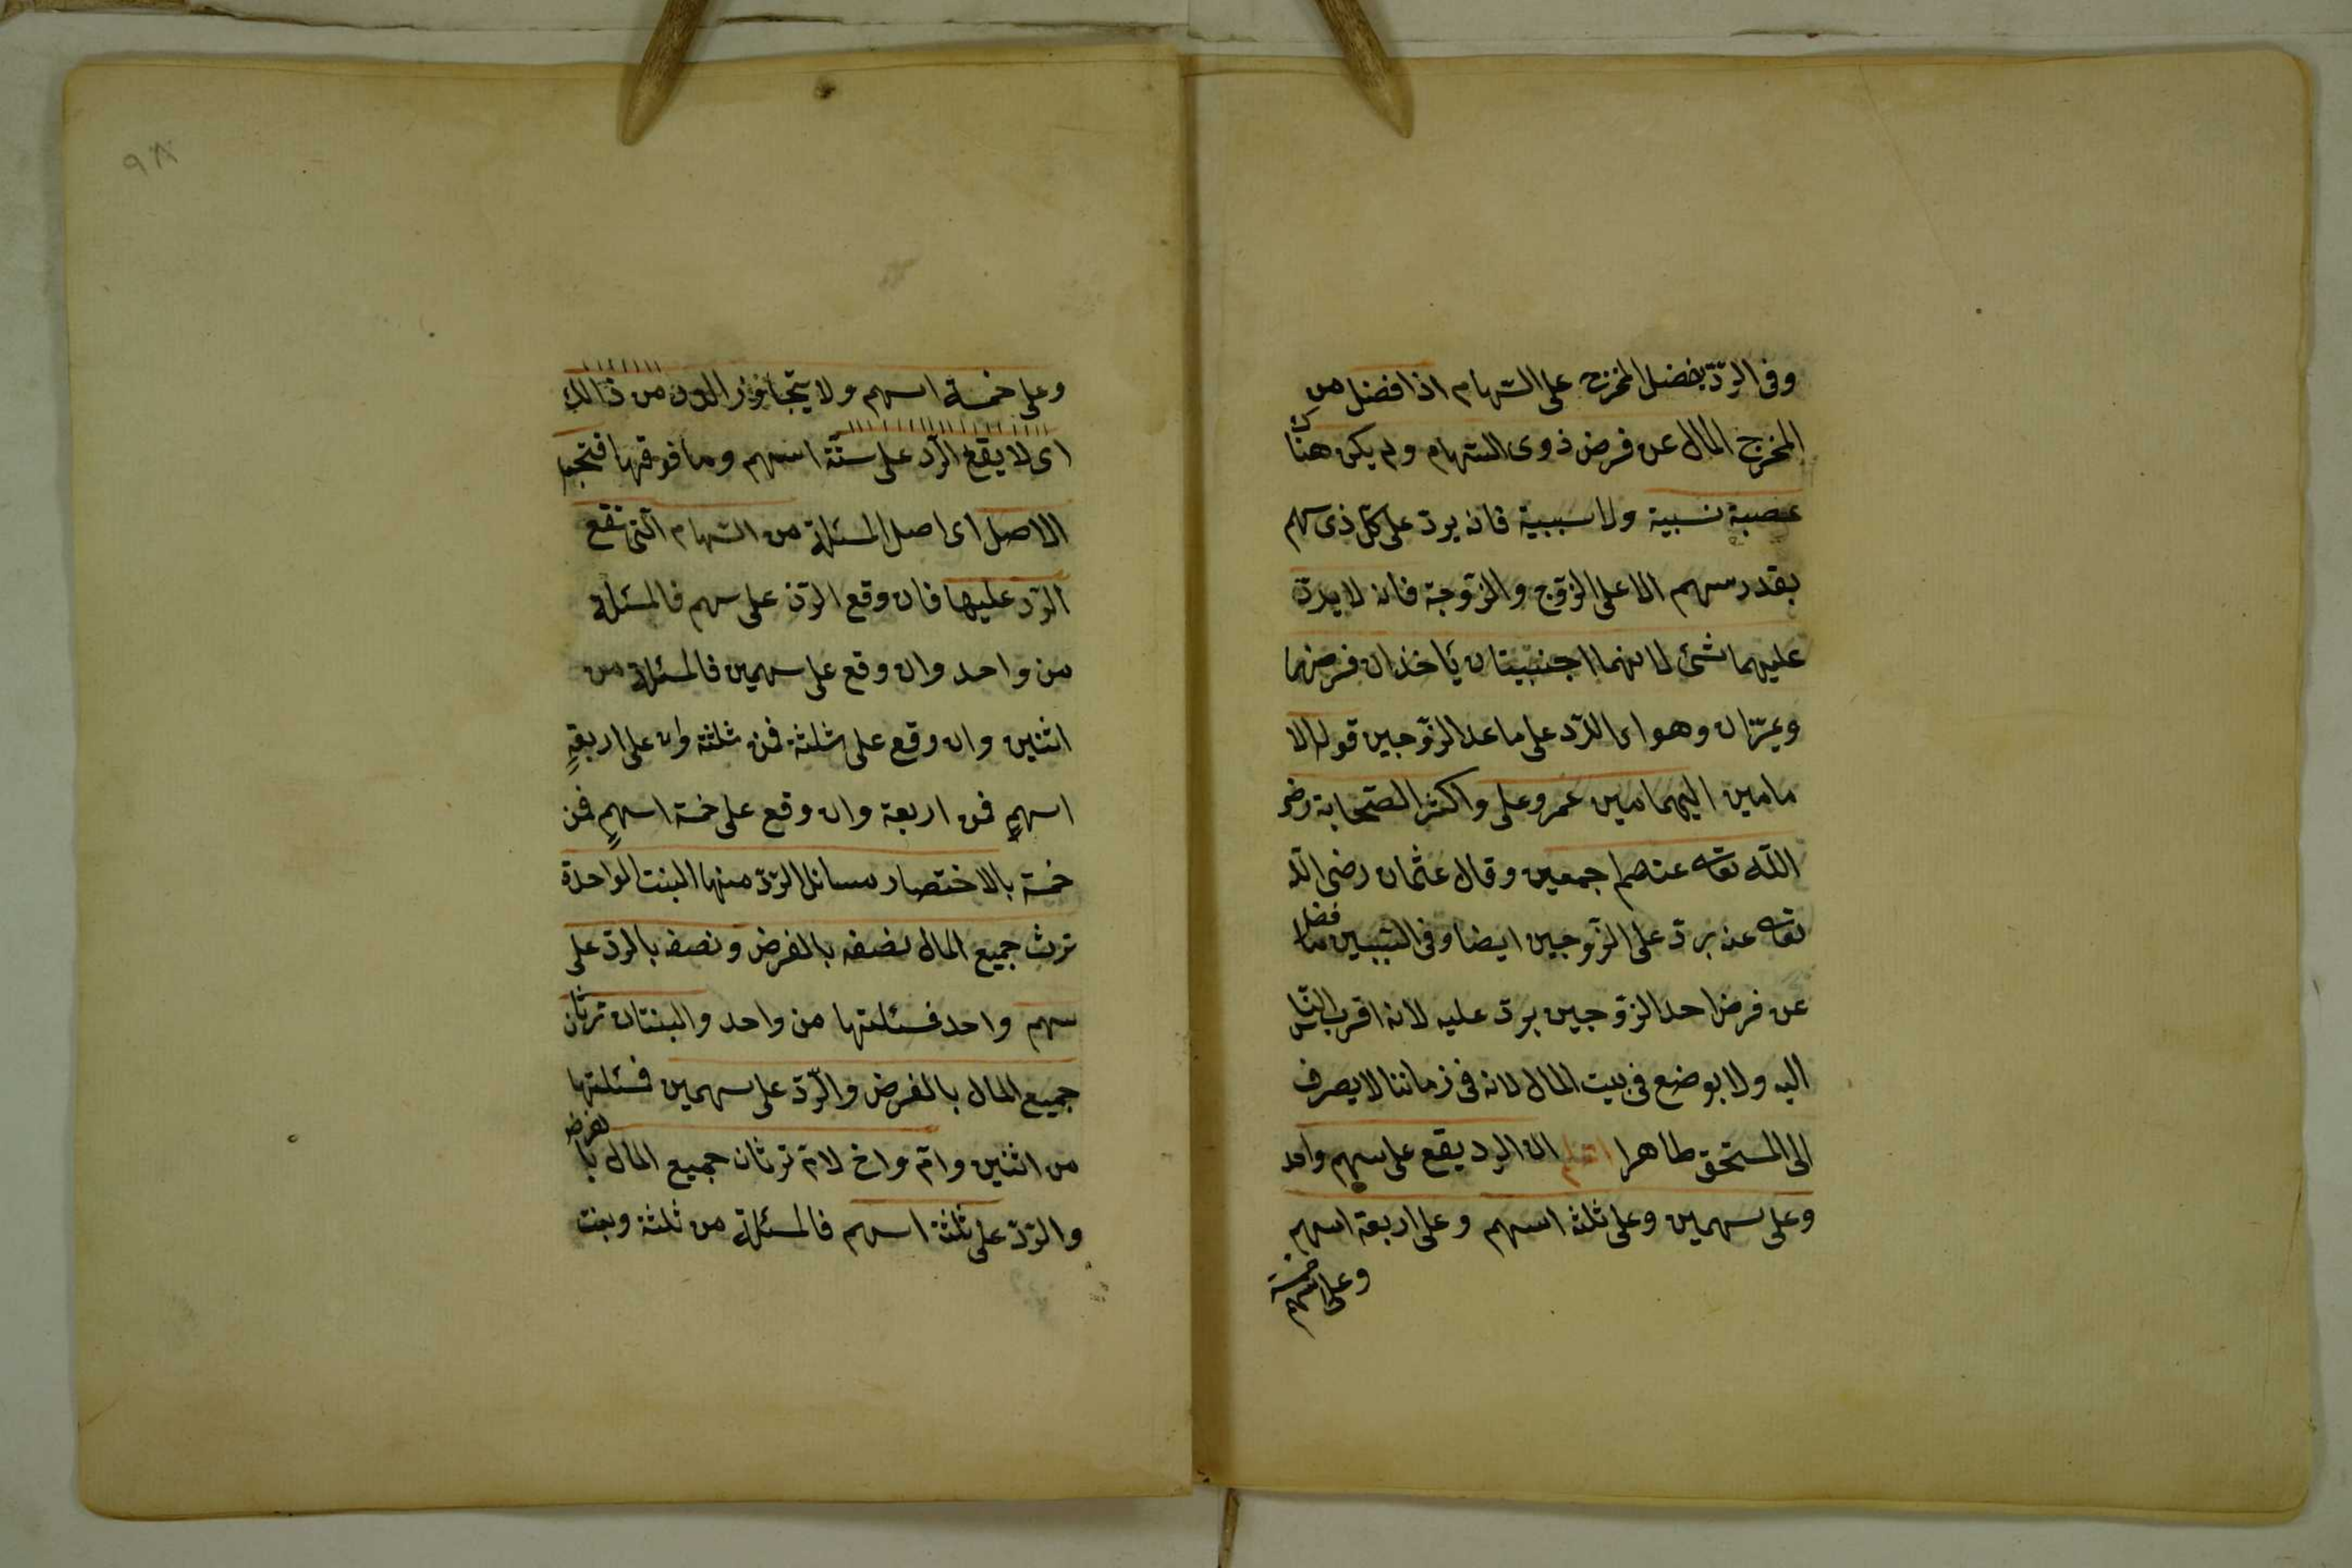 وفى الردّ يفضل المخرج على السّهام اذا فضل من
المخرج المال عن فرض ذوى السّهام ولم يكن هناك
عصبة نسبية ولا سببية فانه يردّ على كلّ ذى سهم
بقدر سهم الا على الزّوج والزّوجة فانه لا يردّ
عليهما شئ لانهما اجنبيتان يأخذان فرضهما
وهو اى الرّد على ما عدا الزّوجين قول الا
مامين عمر وعلى واكثر الصّحابة رضى
اللّه تعالى عنهم اجمعين وقال عثمان رضى اللّه
تعالى عنه يردّ على الزّوجين ايضا وفى ما فضل
عن فرض احد الزّوجين يردّ عليه لانه اقرب النّاس
اليه ولا يوضع فى بيت المال لانه فى زماننا لا يصرف
الى المستحق ظاهرا اعلم ان الرد يقع على سهم واحد
وعلى سهمين وعلى ثلثة اسهم وعلى اربعة اسهم
وعلى خمسة اسهم
٩٨
وعلى خمسة اسهم ولا يتجاوز الرد من ذالك
اى لا يقع الرّد على ستّة اسهم وما فوقها فتجعل
الاصل اى اصل المسئلة من السّهام الّتى تقع
الرّد عليها فان وقع الرّد على سهم فالمسئلة
من واحد وان وقع على سهمين فالمسئلة من
اثنين وان وقع على ثلثة فمن ثلثة وان على اربعةٍ
اسهمٍ فمن اربعة وان وقع على خمسة اسهمٍ فمن
خمسة بالاختصار مسائل الردّ منها البنت الواحدة
ترث جميع المال نصفه بالفرض ونصفه بالردّ على
سهم واحد فمسئلتها من واحد والبنتان ترثان
جميع المال بالفرض والرّدّ على سهمين فمسئلتها
من اثنين وامّ واخ لامّ ترثان جميع المال بالفرض
والردّ على ثلثة اسهم فالمسئلة من ثلثة وبنت